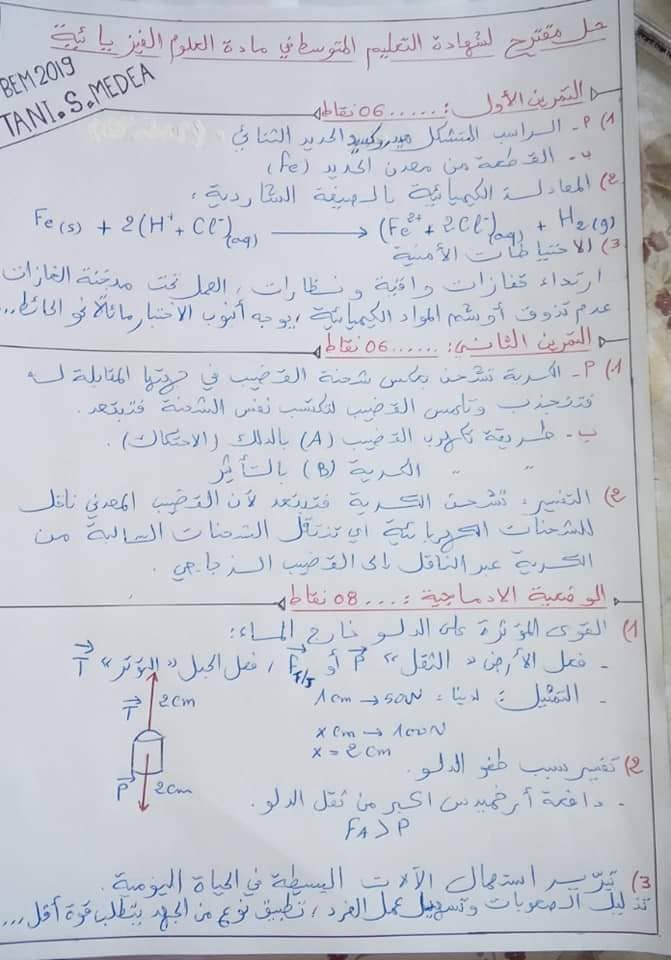 حل مقترح لشهادة التعليم المتوسط في مادة العلوم الفيزيائية
BEM 2019
TANI.S.MEDEA
التمرين الأول: ......06 نقاط
1) أ- الراسب المتشكل هيدروكسيد الحديد الثنائي
ب- القطعة من معدن الحديد (Fe)
2) المعادلة الكيميائية بالصيغة الشاردية:
Fe(s) + 2(H⁺ + Cl⁻)(aq) ⟶ (Fe²⁺ + 2Cl⁻)(aq) + H₂(g)
3) الاحتياطات الأمنية
ارتداء قفازات واقية ونظارات، العمل تحت مدخنة الغازات
عدم تذوق أو شم المواد الكيميائية، يوجه أنبوب الاختبار مائلا نحو الحائط...
التمرين الثاني: ......06 نقاط
1) أ- الكرية تشحن بعكس شحنة القضيب في جهتها المقابلة له
فتنجذب وتلامس القضيب لتكتسب نفس الشحنة فتبتعد.
ب- طريقة تكهرب القضيب (A) بالدلك (الاحتكاك).
" " الكرية (B) بالتأثير
2) التفسير: تشحن الكرية فتبتعد لأن القضيب المعدني ناقل
للشحنات الكهربائية أي تنتقل الشحنات السالبة من
الكرية عبر الناقل إلى القضيب الزجاجي.
الوضعية الادماجية: ....08 نقاط
1) القوى المؤثرة على الدلو خارج الماء:
- فعل الأرض "الثقل" P أو F T/J، فعل الحبل "التوتر" T
- التمثيل: لدينا: 1cm → 50N
x cm → 100N
x = 2 cm
T 2cm
P 2cm
2) تفسير سبب طفو الدلو.
- دافعة أرخميدس اكبر من ثقل الدلو.
FA > P
3) تبرير استعمال الآلات البسيطة في الحياة اليومية.
تذليل الصعوبات وتسهيل عمل الفرد، تطبيق نوع من الجهد يتطلب قوة أقل...